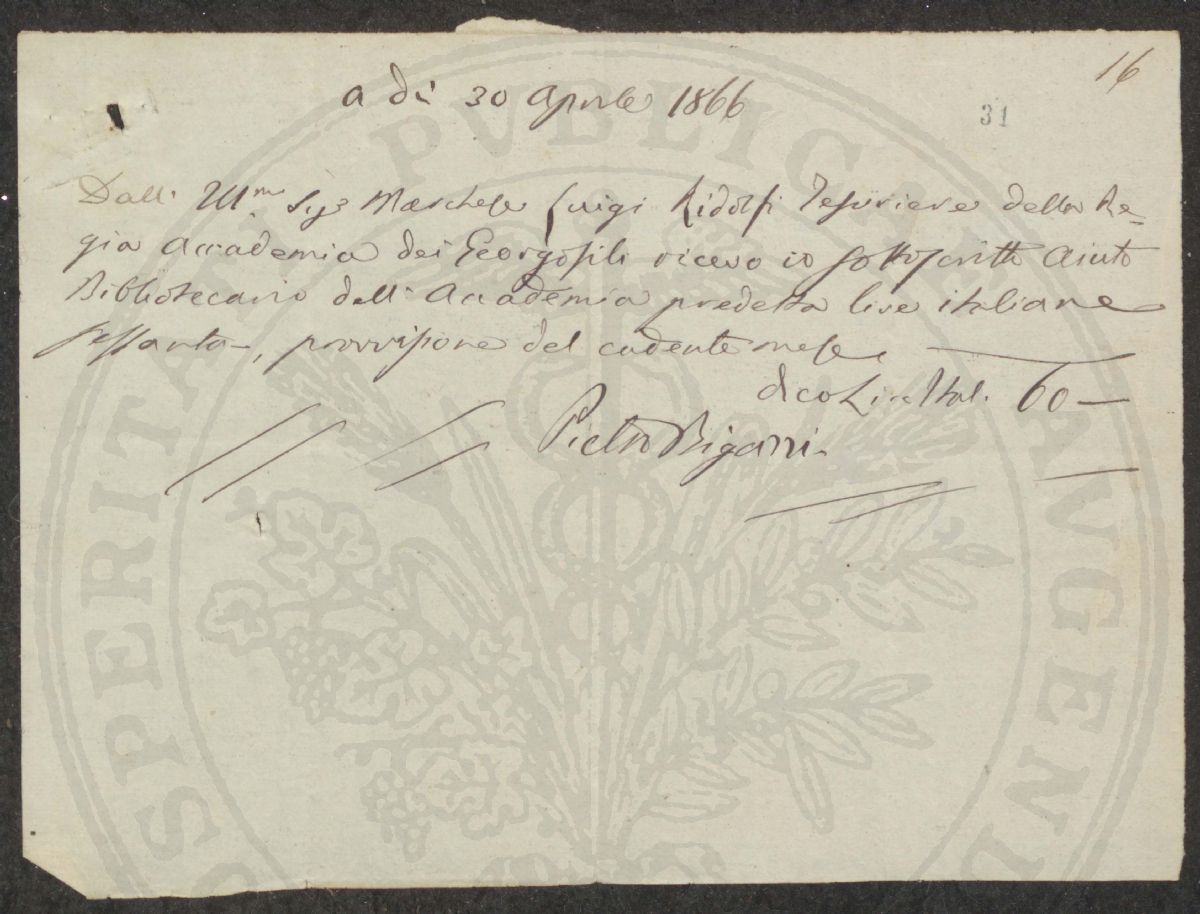 16
a dì 30 Aprile 1866
31
Dall' Ill.mo Sig.r Marchese Luigi Ridolfi Tesoriere della Re=
gia Accademia dei Georgofili ricevo io sottoscritto Aiuto
Bibliotecario dell' Accademia predetta lire italiane
sessanta, provvisione del cadente mese,
dico Lire Ital. 60 —
Pietro Bigazzi
PROSPERITATI PVBLICAE AVGENDAE